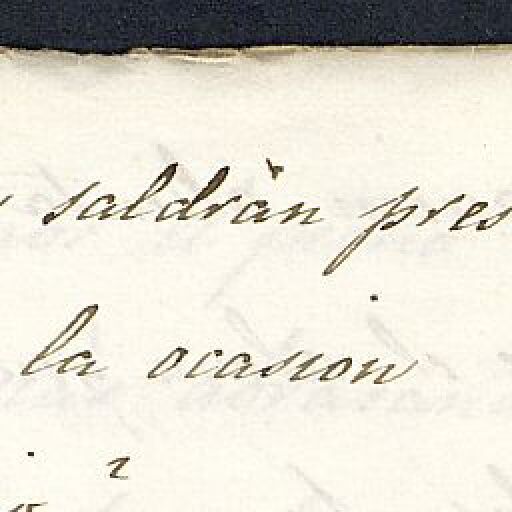 saldràn pres
la ocasion